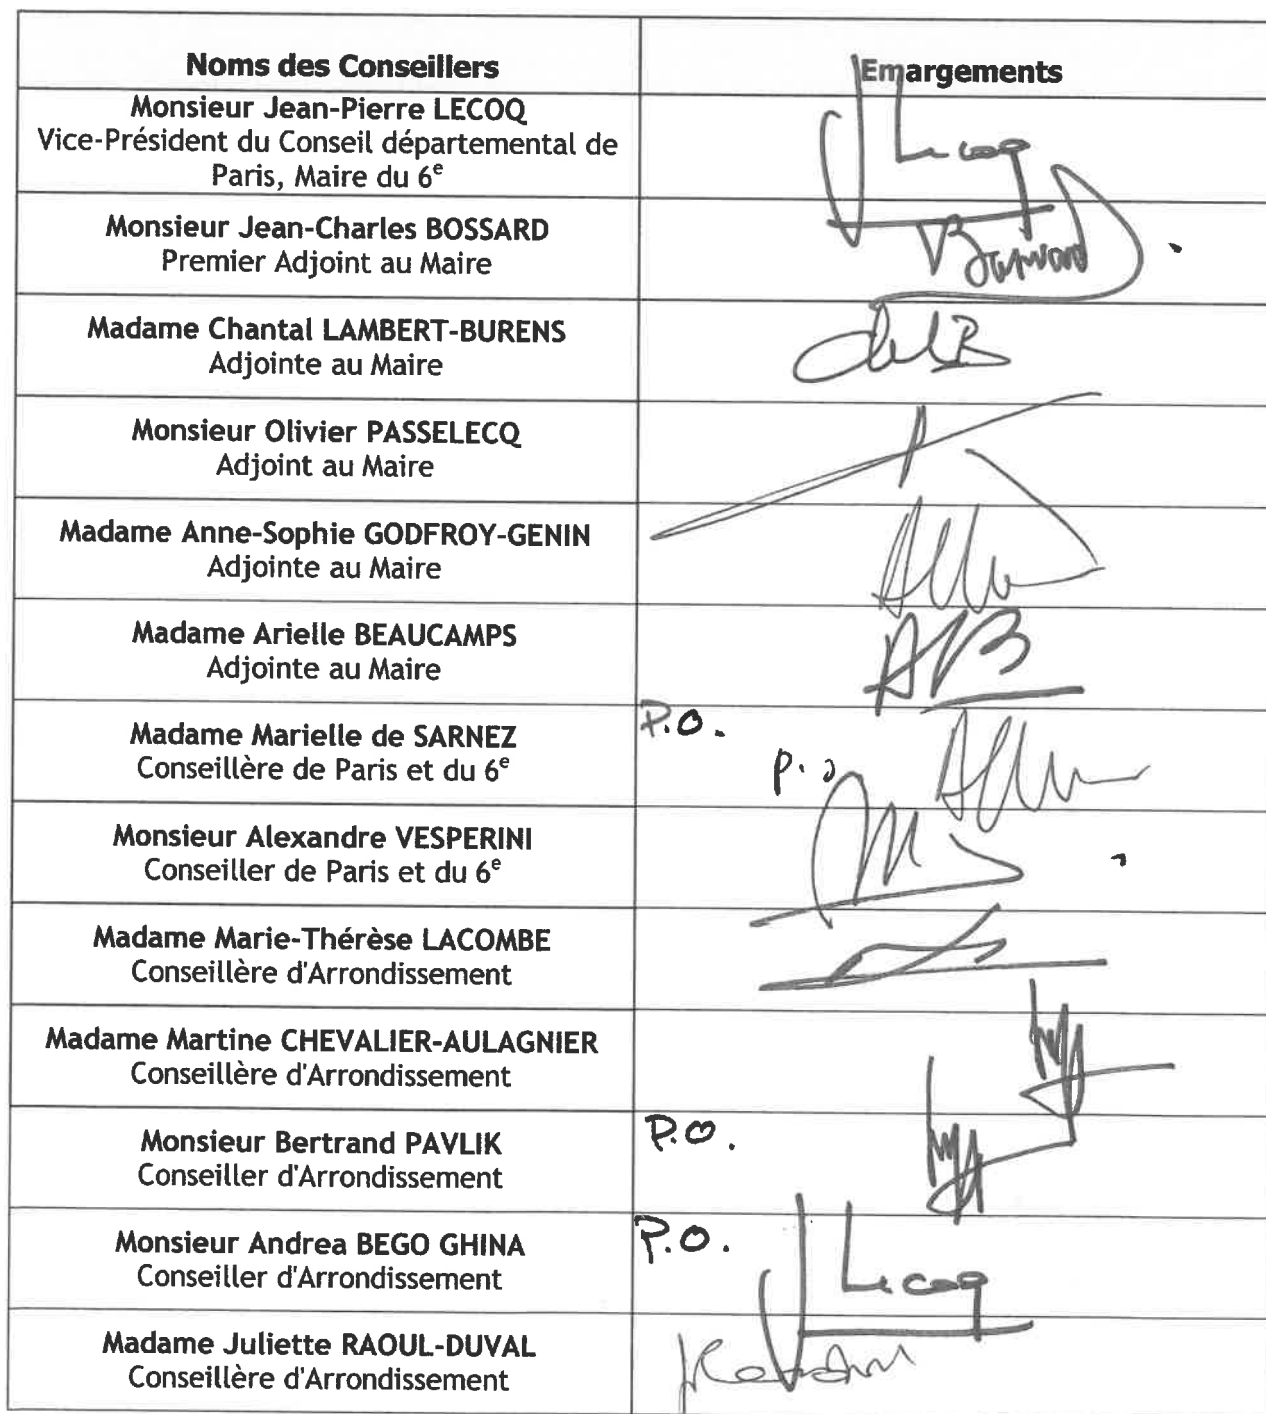 Noms des Conseillers
Emargements
Monsieur Jean-Pierre LECOQ
Vice-Président du Conseil départemental de
Paris, Maire du 6e
J Lecoq
Monsieur Jean-Charles BOSSARD
Premier Adjoint au Maire
Bossard
Madame Chantal LAMBERT-BURENS
Adjointe au Maire
Monsieur Olivier PASSELECQ
Adjoint au Maire
Madame Anne-Sophie GODFROY-GENIN
Adjointe au Maire
Madame Arielle BEAUCAMPS
Adjointe au Maire
AB
Madame Marielle de SARNEZ
Conseillère de Paris et du 6e
P.O.
p.o
Monsieur Alexandre VESPERINI
Conseiller de Paris et du 6e
Madame Marie-Thérèse LACOMBE
Conseillère d'Arrondissement
Madame Martine CHEVALIER-AULAGNIER
Conseillère d'Arrondissement
Monsieur Bertrand PAVLIK
Conseiller d'Arrondissement
P.O.
Monsieur Andrea BEGO GHINA
Conseiller d'Arrondissement
P.O.
J Lecoq
Madame Juliette RAOUL-DUVAL
Conseillère d'Arrondissement